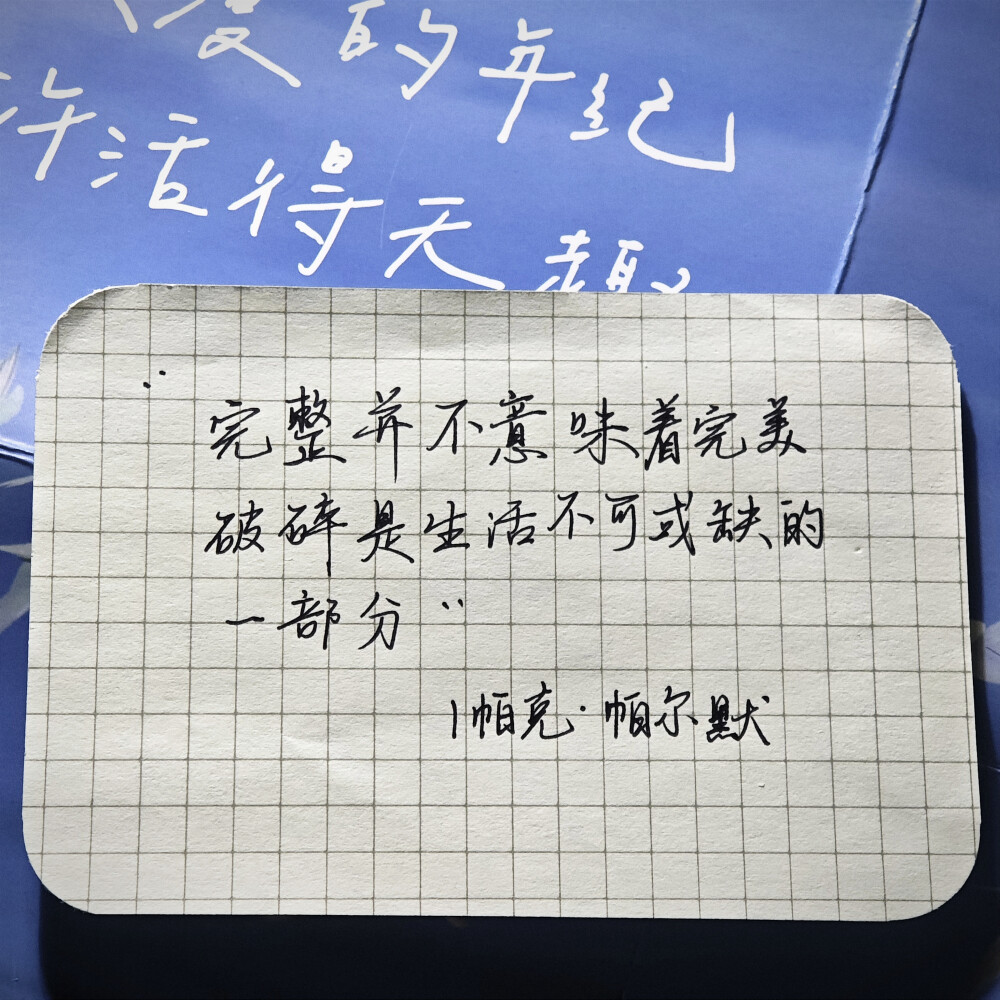 度的年纪
许活得天真
"完整并不意味着完美
破碎是生活不可或缺的
一部分"
|帕克·帕尔默